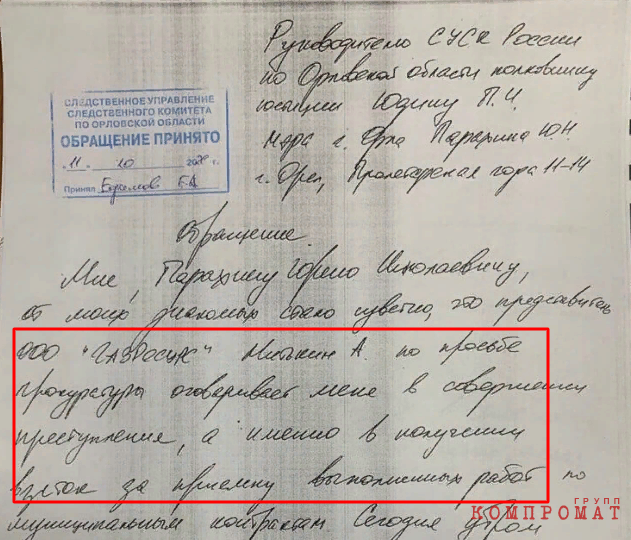 Руководителю СУСК России
по Орловской области полковнику
юстиции Юдину П.Ч.
Мэра г. Орла Парахина Ю.Н.
г. Орел, Пролетарская гора 11-14
СЛЕДСТВЕННОЕ УПРАВЛЕНИЕ
СЛЕДСТВЕННОГО КОМИТЕТА
ПО ОРЛОВСКОЙ ОБЛАСТИ
ОБРАЩЕНИЕ ПРИНЯТО
"11" 10 2020 г.
Принял
Обращение.
Мне, Парахину Юрию Николаевичу,
от моих знакомых стало известно, что представитель
ООО "ГАЗРесурс" Никитин А. по просьбе
прокуратуры оговаривает меня в совершении
преступления, а именно в получении
взяток за приемку выполненных работ по
муниципальным контрактам Сегодня утром
ГРУПП
КОМПРОМАТ